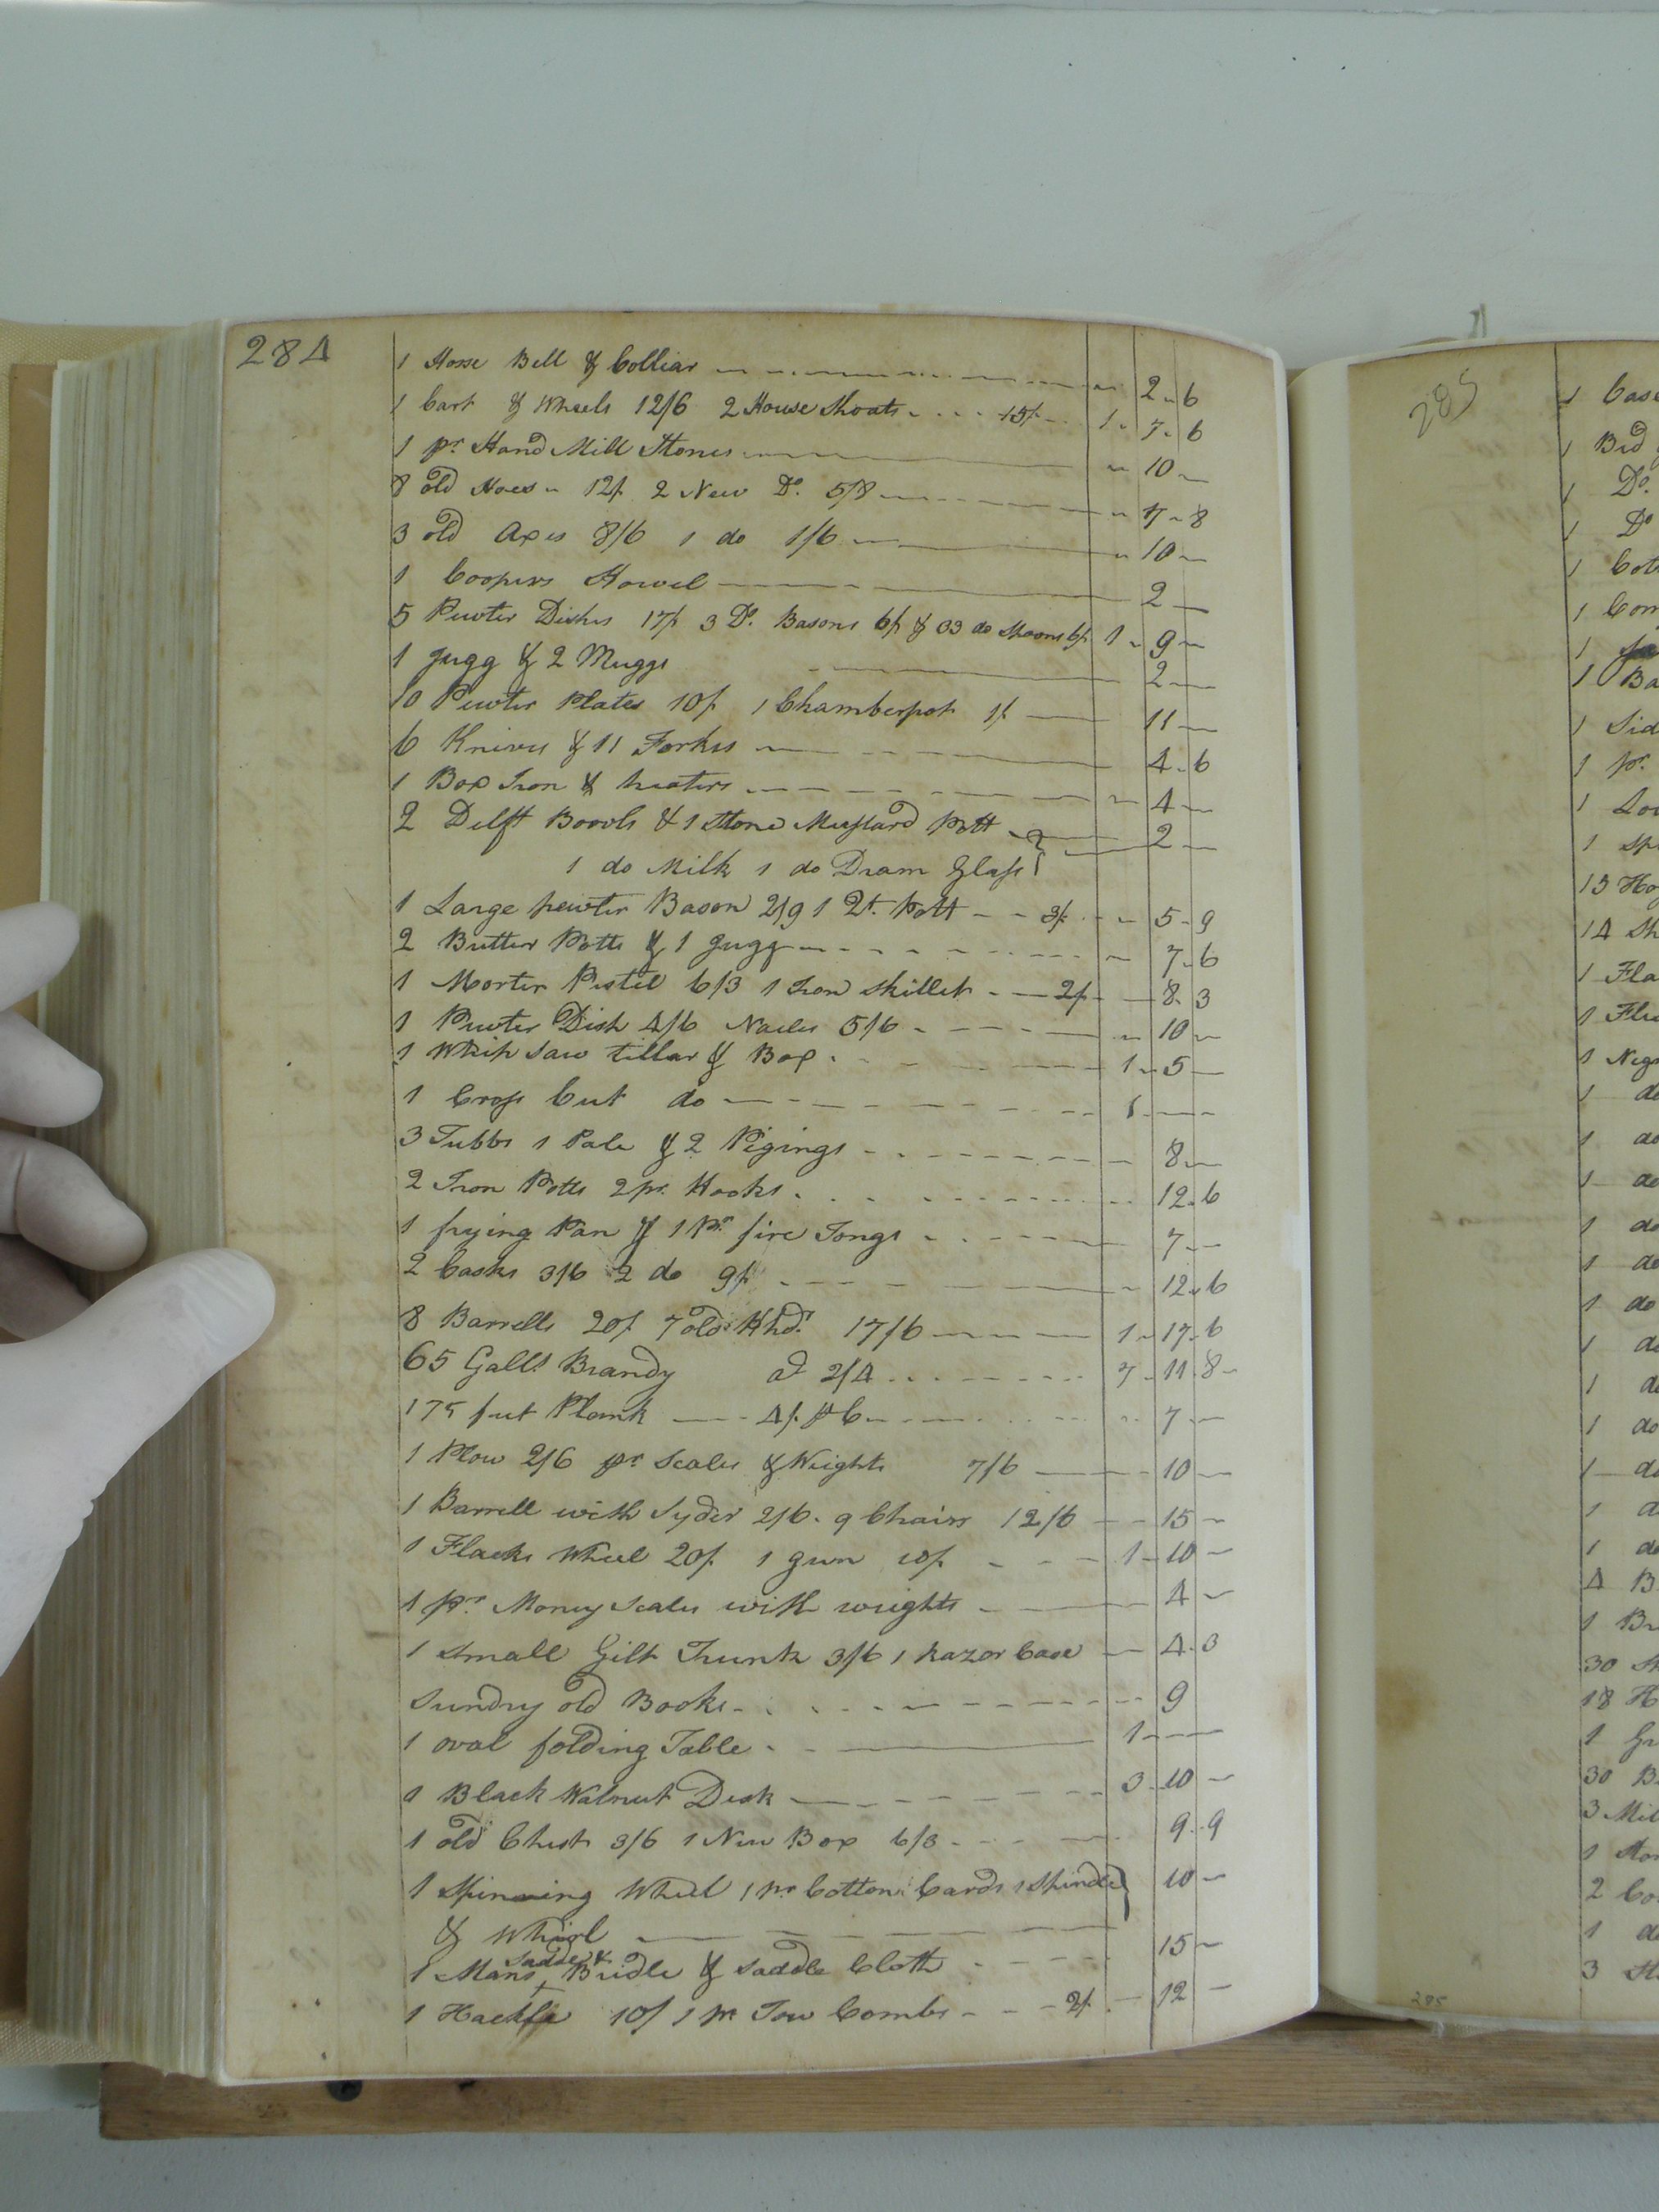 284
1 Horse Bell & Colliar 2 6
1 Cart & Wheels 12/6 2 House Shoats 15/ 1 7 6
1 pr Hand Mill Stones 10
8 old Hoes 12/ 2 New Do. 5/8 17 8
3 old Axes 8/6 1 do 1/6 10
1 Coopers Howel 2
5 Pewter Dishes 17/ 3 Do. Basons 6/ & 33 do Spoons 6/ 1 9
1 Jugg & 2 Muggs 2
10 Pewter Plates 10/ 1 Chamberpot 1/ 11
6 Knives & 11 Forkes 4 6
1 Box Iron & heaters 4
2 Delft Bowls & 1 Stone Mustard Pott 2
1 do Milk 1 do Dram Glass
1 Large pewter Bason 2/9 1 Qt. Pott 3/ 5 9
2 Butter Potts & 1 Jugg 7 6
1 Morter Pestel 6/3 1 Iron Skillet 2/ 8 3
1 Pewter Dish 4/6 Nailes 5/6 10
1 Whip Saw tillar & Box 1 5
1 Cross Cut do 1
3 Tubbs 1 Pale & 2 Pigings 8
2 Iron Potts 2 pr. Hooks 12 6
1 frying Pan & 1 Pr. fire Tongs 7
2 Casks 3/6 2 do 9/ 12 6
8 Barrells 20/ 7 old Hhds. 17/6 1 17 6
65 Galls Brandy at 2/4 7 11 8
175 feet Plank 4/ 7
1 Plow 2/6 pr Scales & Weights 7/6 10
1 Barrell with Syder 2/6 9 Chairs 12/6 15
1 Flacks Wheel 20/ 1 gun 10/ 1 10
1 pr. Money Scales with weights 4
1 Small Gilt Trunk 3/6 1 Razor Case 4 3
Sundry old Books 9
1 oval folding Table 1
1 Black Walnut Desk 3 10
1 old Chest 3/6 1 New Box 6/3 9 9
1 Spinning Wheel 1 pr Cotton Cards 1 Spindle 10
& Whirl
Saddle &
1 Mans Bridle & Saddle Cloth 15
1 Hackle 10/ 1 pr Tow Combs 2/ 12
285
1 Case
1 Bed
1 Do.
1 Do
1
1
1
1 Ba
1 Sid
1 pr.
1
1
13 Hog
14 Sh
1 Fla
1
1
1 do
1 do
1 do
1 do
1 do
1 do
1 do
1 do
1 do
1 do
1 d
1 do
4 B
1 Br
30 Sh
18 H
1
30 B
3 Mil
1
2
1 d
3
285